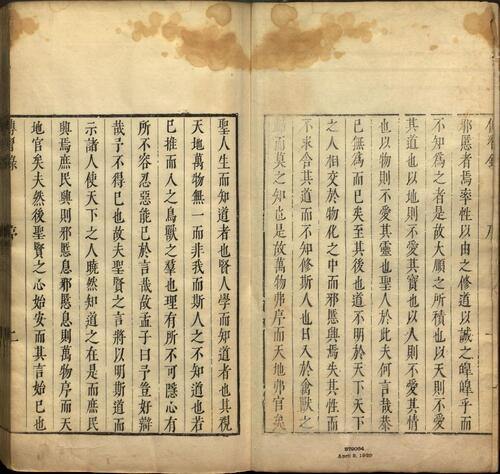 邪慝者焉率性以由之修道以誠之皥皥乎而
不知為之者是故大順之所積也以天則不愛
其道也以地則不愛其寶也以人則不愛其情
也以物則不愛其靈也聖人於此夫何言哉恭
已無為而已矣至其後也道不明於天下天下
之人相交於物化之中而邪慝興焉失其性而
不求舍其道而不知修斯人也日入於禽獸之
歸而莫之知也是故萬物弗序而天地弗官矣
聖人生而知道者也賢人學而知道者也其視
天地萬物無一而非我而斯人之不知道也若
已推而入之鳥獸之羣也理有所不可隱心有
所不容忍惡能已於言哉故孟子曰予豈好辯
哉予不得已也故夫聖賢之言將以明斯道而
示諸人使天下之人曉然知道之在是而庶民
興焉庶民興則邪慝息邪慝息則萬物序而天
地官矣夫然後聖賢之心始安而其言始已也
傳習錄 序 二
April 8, 1920